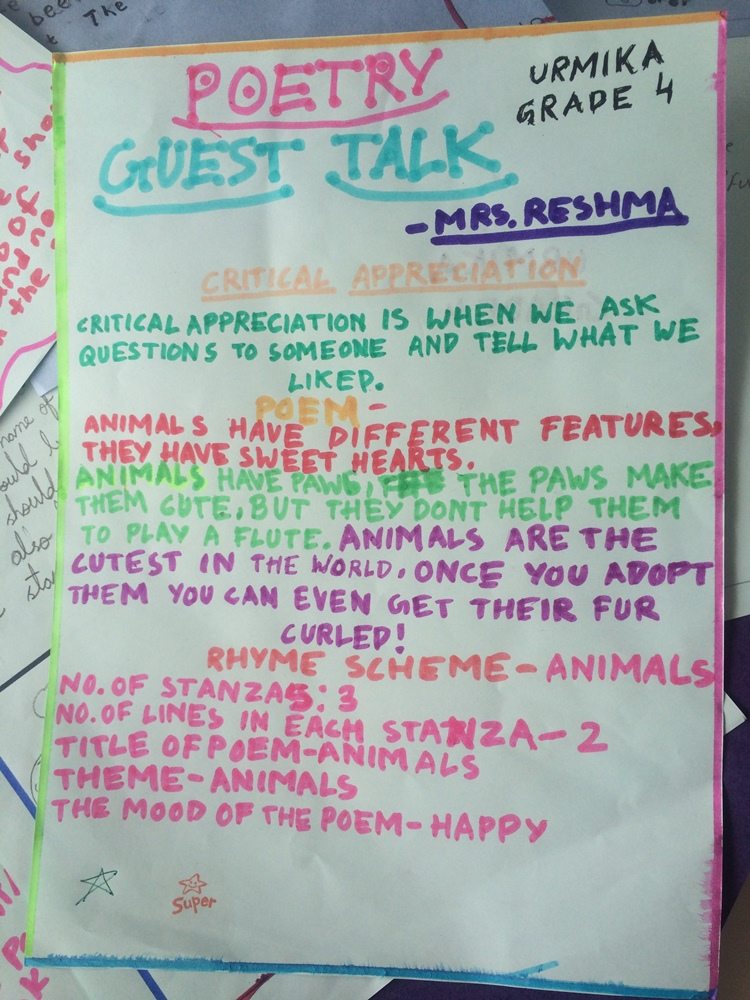 POETRY
URMIKA
GRADE 4
GUEST TALK
-MRS. RESHMA
CRITICAL APPRECIATION
CRITICAL APPRECIATION IS WHEN WE ASK
QUESTIONS TO SOMEONE AND TELL WHAT WE
LIKED.
POEM-
ANIMALS HAVE DIFFERENT FEATURES,
THEY HAVE SWEET HEARTS.
ANIMALS HAVE PAWS, THE PAWS MAKE
THEM CUTE, BUT THEY DONT HELP THEM
TO PLAY A FLUTE. ANIMALS ARE THE
CUTEST IN THE WORLD, ONCE YOU ADOPT
THEM YOU CAN EVEN GET THEIR FUR
CURLED!
RHYME SCHEME-ANIMALS
NO. OF STANZAS: 3
NO. OF LINES IN EACH STANZA-2
TITLE OF POEM-ANIMALS
THEME-ANIMALS
THE MOOD OF THE POEM-HAPPY
Super